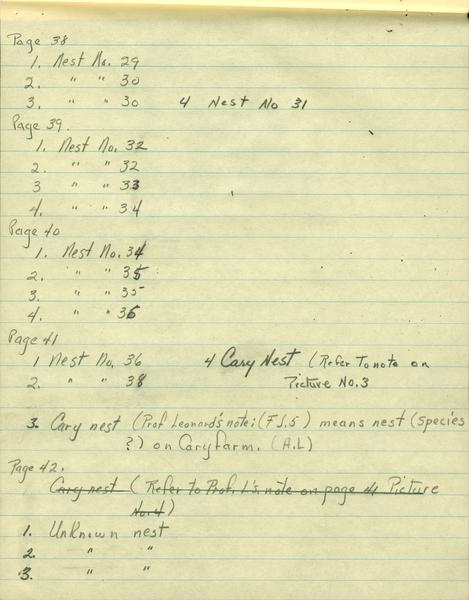 Page 38
1. Nest No. 29
2. " " 30
3. " " 30 4 Nest No 31
Page 39.
1. Nest No. 32
2. " " 32
3 " " 33
4. " " 34
Page 40
1. Nest No. 34
2. " " 35
3. " " 35
4. " " 36
Page 41
1 Nest No. 36 4 Cary Nest (Refer To note on
2. " " 38 Picture No. 3
3. Cary nest (Prof Leonard's note: (F J.S) means nest (species
?) on Cary farm. (A.L)
Page 42.
Cary nest (Refer to Prof. L's. note on page 41 Picture
No. 4)
1. Unknown nest
2. " "
3. " "